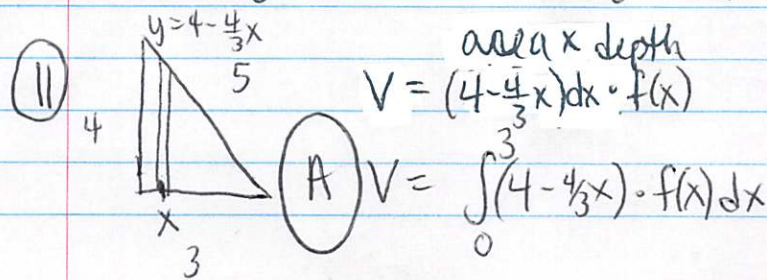 11
y=4-4/3x
5
4
x
3
area x depth
V = (4-4/3x)dx · f(x)
A
V = ∫₀³(4-4/3x)·f(x)dx